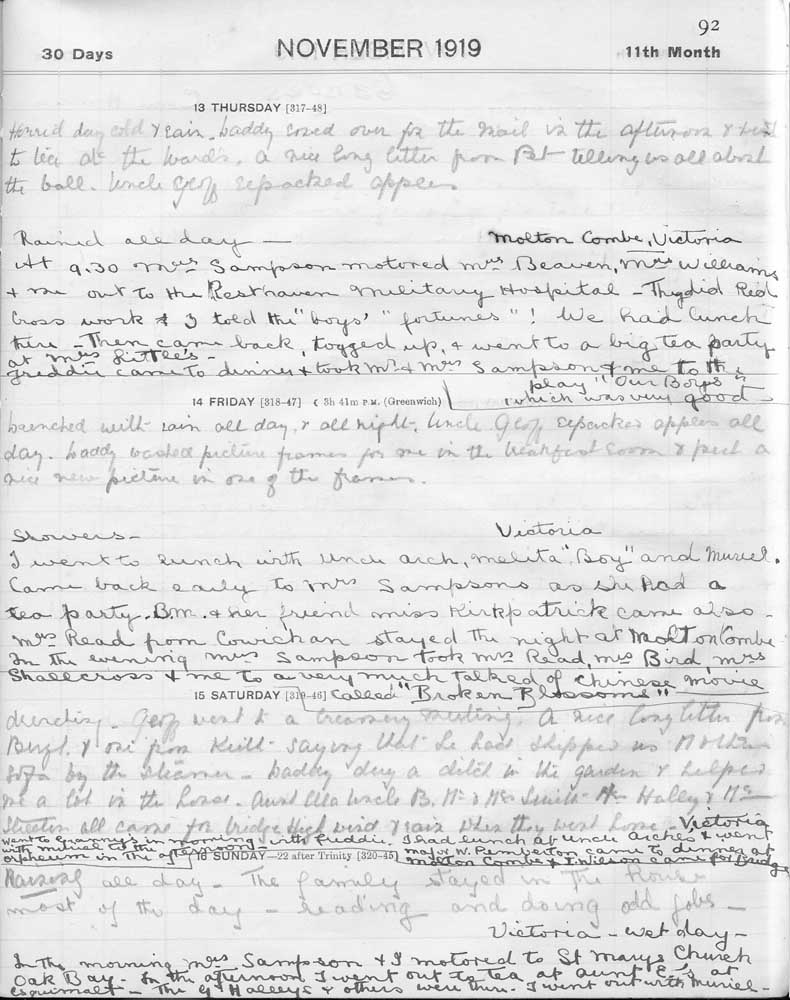 92
30 Days NOVEMBER 1919 11th Month
13 THURSDAY [317-48]
Horrid day cold & rain. Daddy rowed over for the mail in the afternoon & went
to tea at the Wards. A nice long letter from Bet telling us all about
the ball. Uncle Geoff repacked apples
Rained all day — Molton Combe, Victoria
At 9.30 Mrs Sampson motored Mrs Beaven, Mrs Williams
& me out to the Resthaven Military Hospital - They did Red
Cross work & I told the "boys'" "fortunes"! We had lunch
there - Then came back, togged up, & went to a big tea party
at Mrs Little's -
Freddie came to dinner & took Mr & Mrs Sampson & me to the
play "Our Boys"
which was very good -
14 FRIDAY [318-47] ☾ 3h 41m P.M. (Greenwich)
Drenched with rain all day, & all night. Uncle Geoff repacked apples all
day. Daddy washed picture frames for me in the breakfast room & put a
nice new picture in one of the frames.
Showers - Victoria
I went to lunch with Uncle Arch, Melita, "Boy" and Muriel.
Came back early to Mrs Sampsons as she had a
tea party. B.M. & her friend Miss Kirkpatrick came also -
Mrs Read from Cowichan stayed the night at Molton Combe
In the evening Mrs Sampson took Mrs Read, Mrs Bird, Mrs
Shallcross & me to a very much talked of Chinese movie
called "Broken Blossoms"
15 SATURDAY [319-46]
Drenching. Geoff went to a meeting. A nice long letter from
& one from Keith saying that he had shipped us Mother
sofa by the steamer - Daddy dug a ditch in the garden & helped
me a lot in the house. Aunt Uncle B. Mr & Mrs Smith Halley & Mrs
all came for bridge. High wind & rain when they went home - Victoria
Went to Granny's in morning - with Freddie. I had lunch at Uncle Arches & went
with Muriel to the
orpheum in the afternoon -
Major W. Pemberton came to dinner at
Molton Combe & J. Wilson came for Bridge
16 SUNDAY—22 after Trinity [320-45]
Raining all day - The family stayed in the house
most of the day - reading and doing odd jobs -
Victoria - wet day -
In the morning Mrs Sampson & I motored to St Marys Church
Oak Bay - In the afternoon I went out to tea at Aunt E-'s at
Esquimalt - The Halleys & others were there. I went out with Muriel -